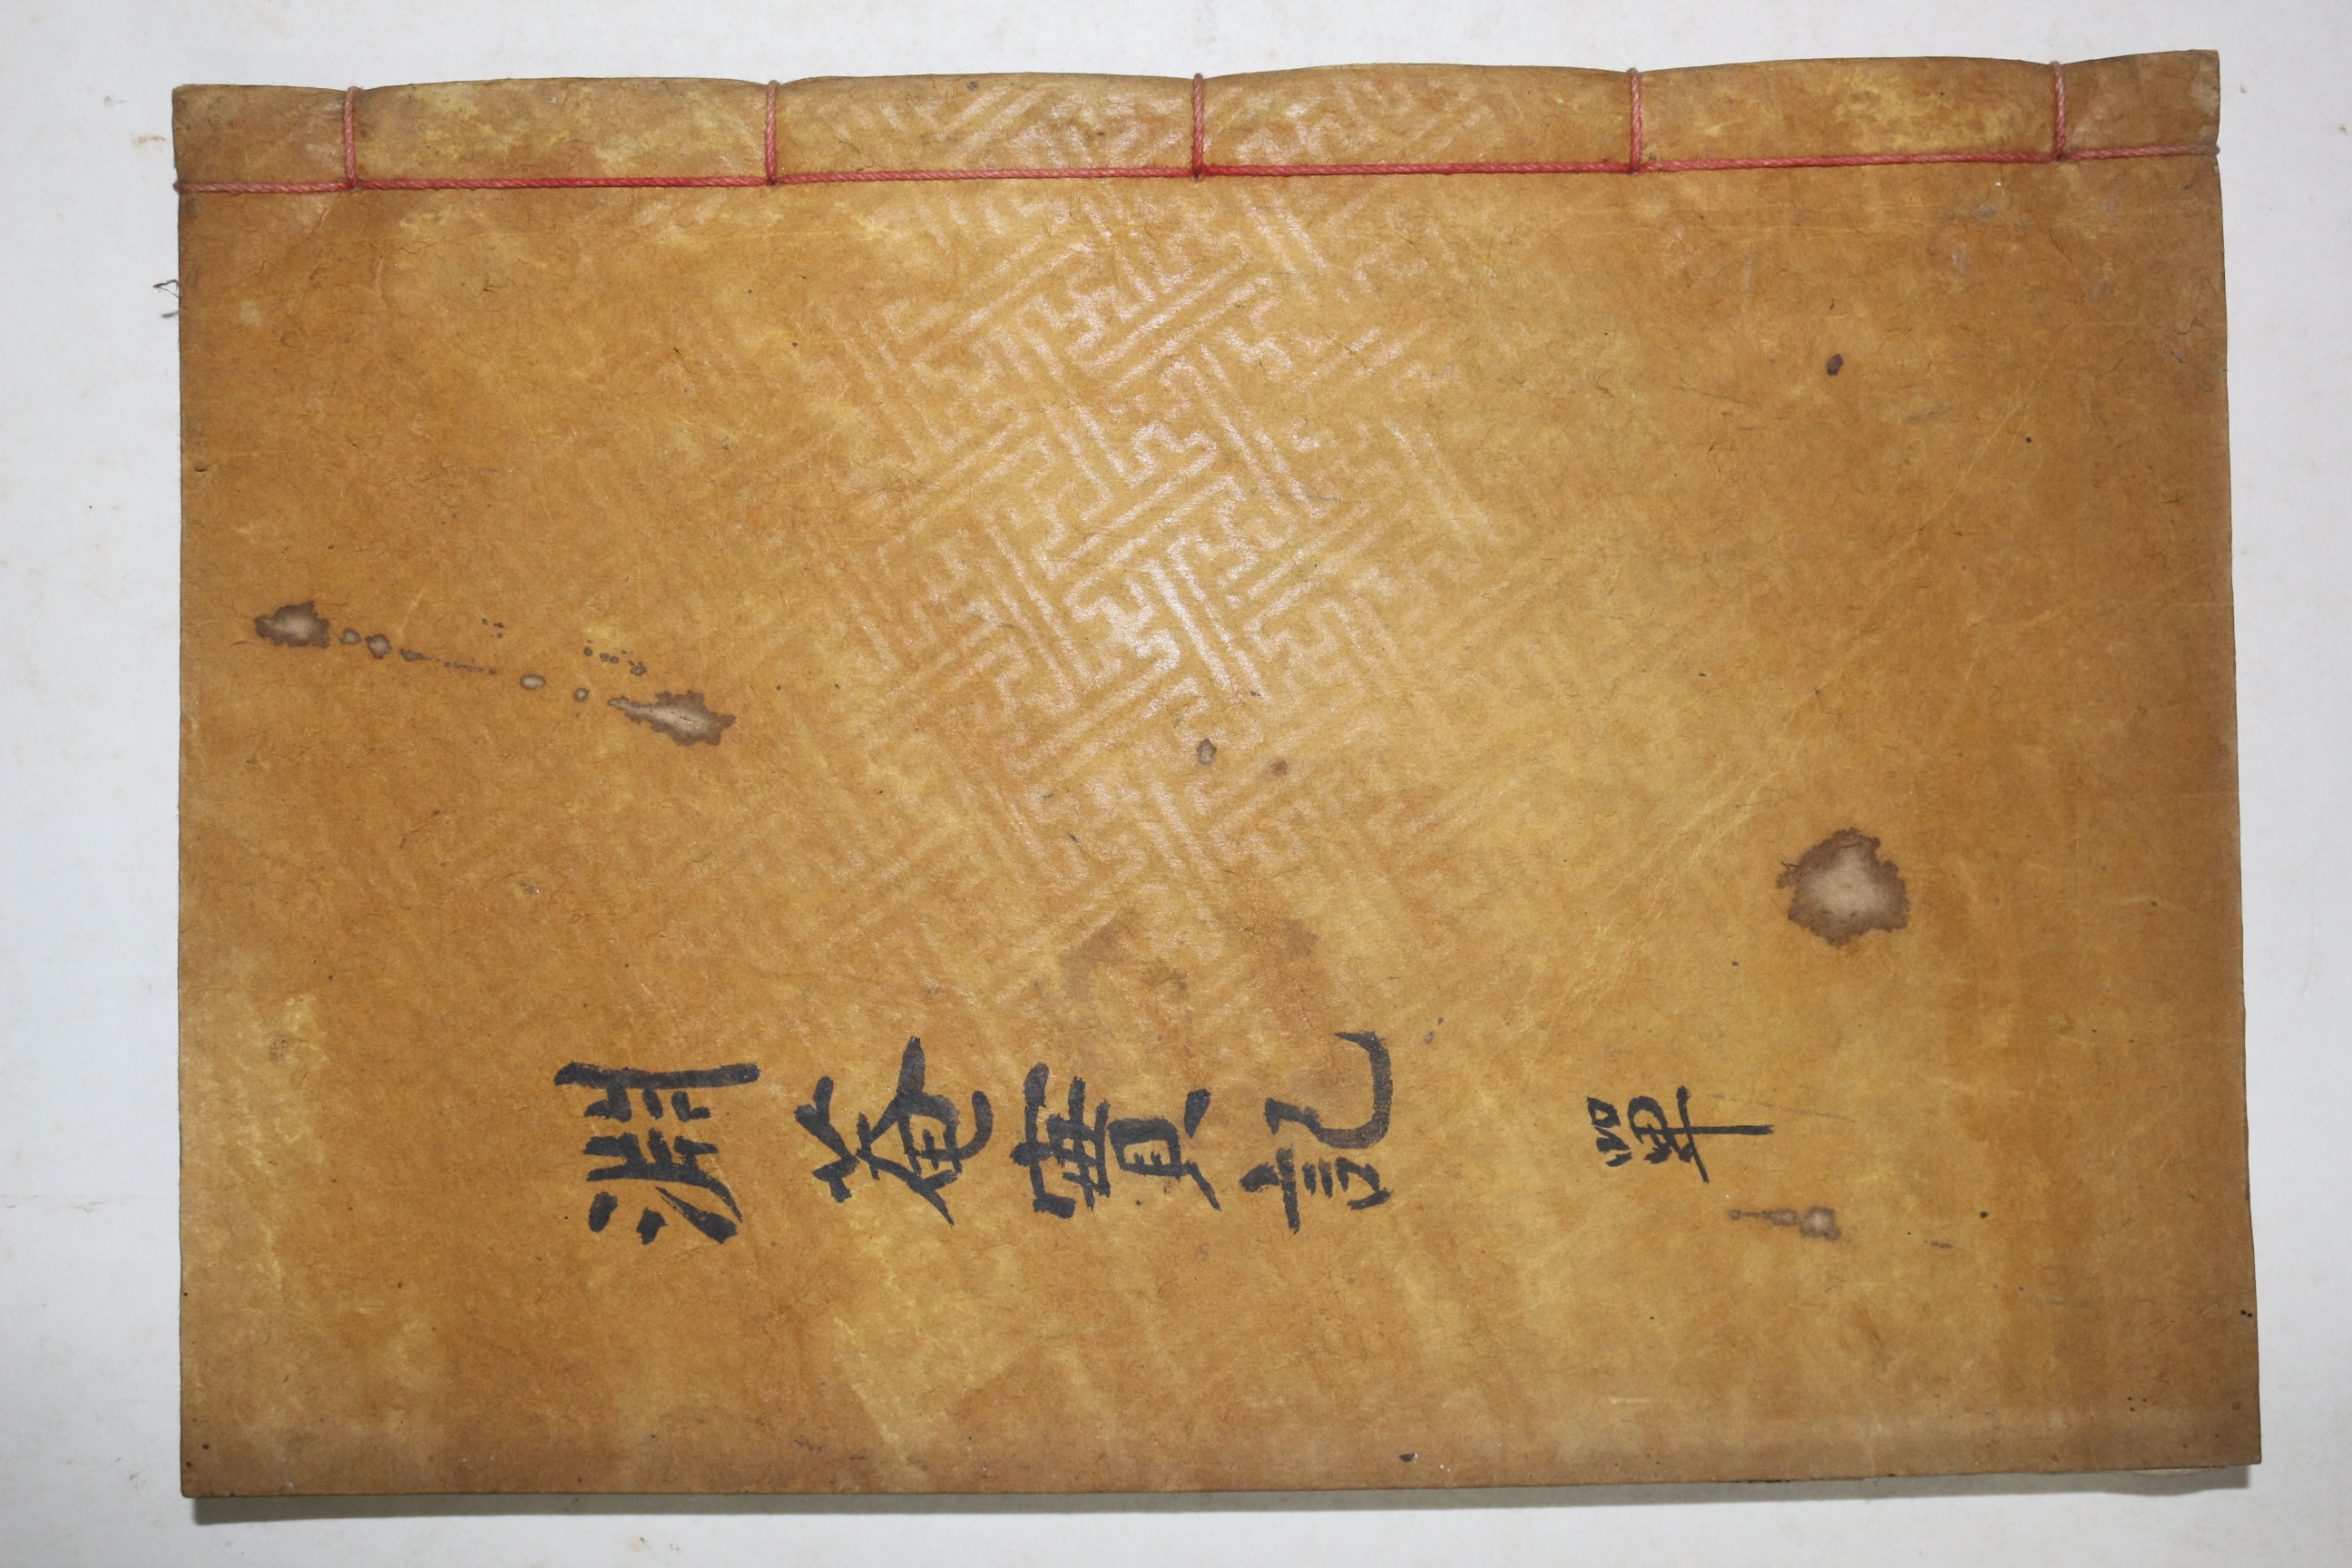 淵菴實記
單